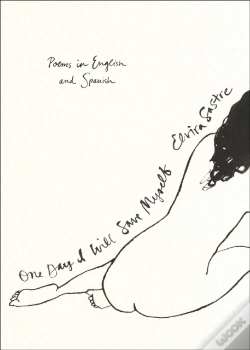 Poems in English
and Spanish
One Day I Will Save Myself
Elvira Sastre
wook